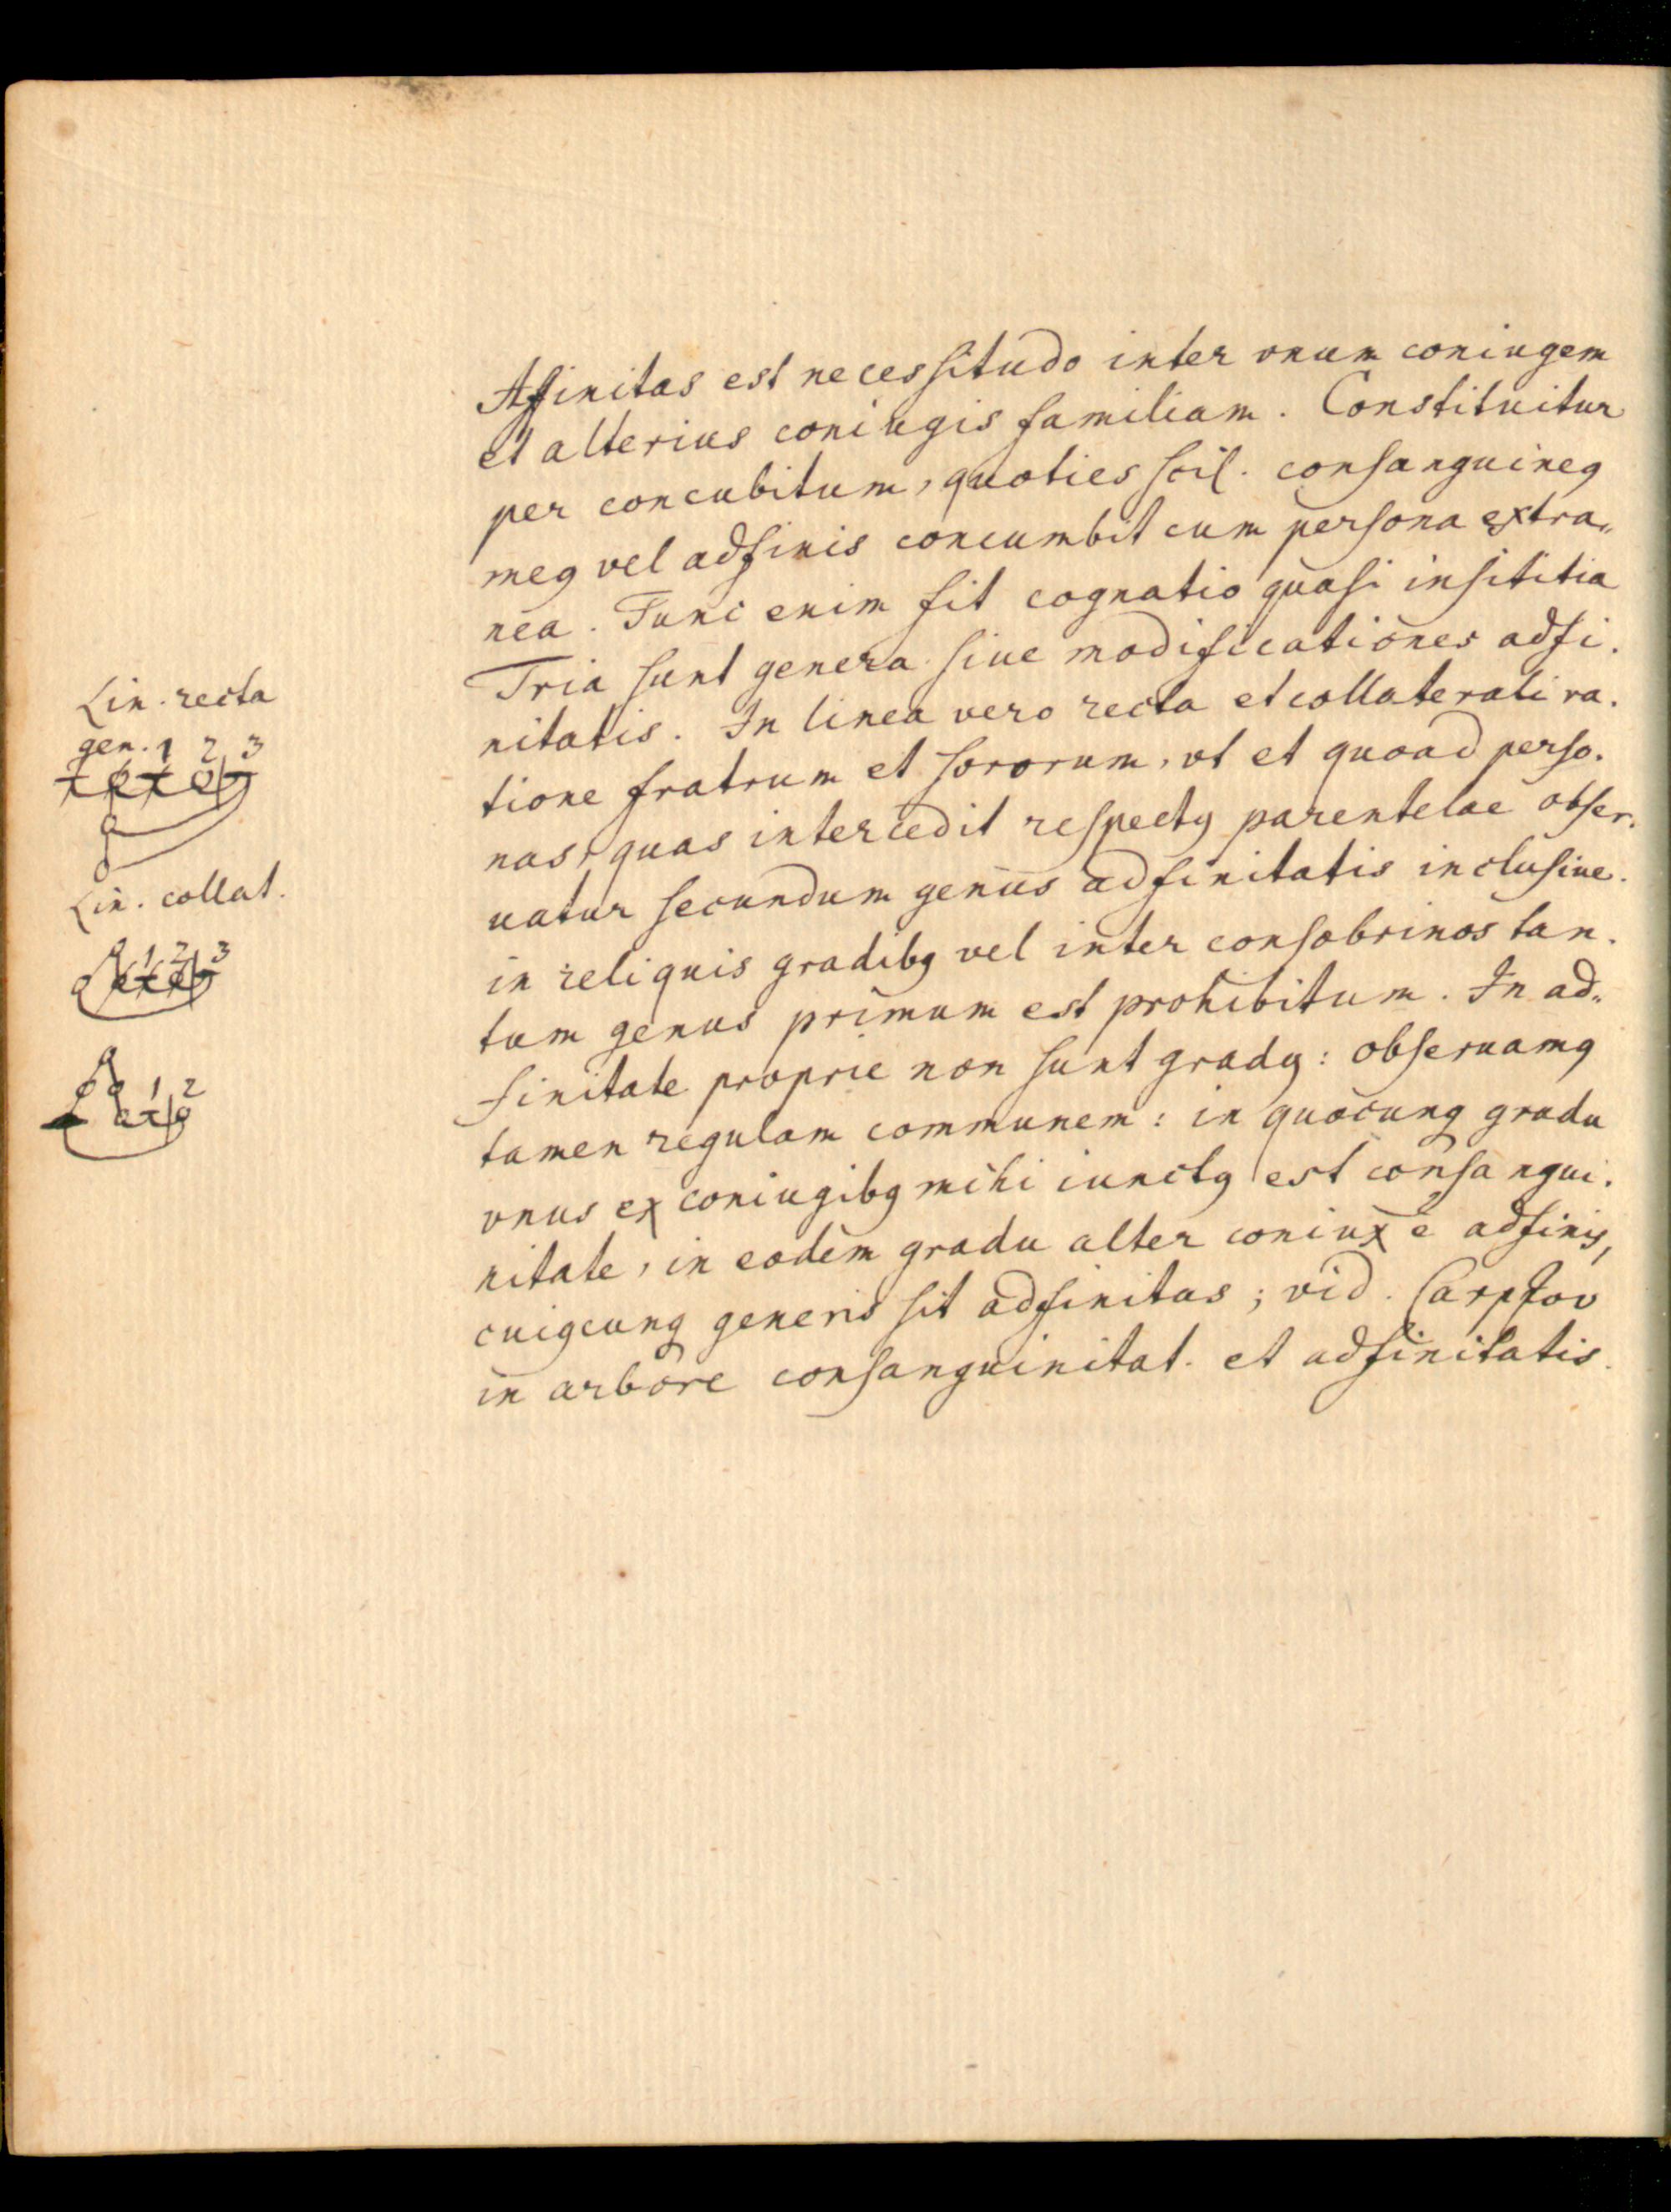 Affinitas est necessitudo inter vnum coniugem
et alterius coniugis familiam. Constituitur
per concubitum, quoties scil. consanguineꝰ
meꝰ vel adfinis concumbit cum persona extra„
nea. Tunc enim fit cognatio quasi insititia
Tria sunt genera siue modificationes adfi.
nitatis. In linea vero recta et collaterali ra.
tione fratrum et sororum, vt et quoad perso.
nas, quas intercedit respectꝰ parentelae obser.
uatur secundum genus adfinitatis inclusiue.
in reliquis gradibꝰ vel inter consobrinos tan.
tum genus primum est prohibitum. In ad„
finitate proprie non sunt gradꝰ: obseruamꝰ
tamen regulam communem: in quocunq gradu
vnus ex coniugibꝰ mihi iunctꝰ est consangui.
nitate, in eodem gradu alter coniux ē adfinis,
cuiꝰcunq generis sit adfinitas; vid. Carpzov
in arbore consanguinitat. et adfinitatis.
Lin. recta
gen. 1 2 3
Lin. collat.
1 2 3
1 2